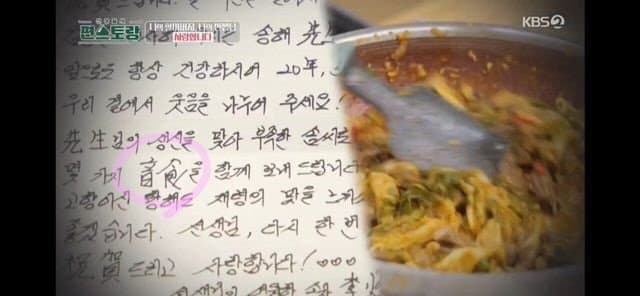 편스토랑
사랑합니다
KBS2
송해 先生
앞으로도 항상 건강하시어 20年,
우리 곁에서 웃음을 나누어 주세요!
先生님의 생신을 맞아 부족한 솜씨로
몇 가지 音食을 함께 보내드립니다
고향이신 황해도 재령의 맛을 느끼
좋겠습니다. 선생님, 다시 한 번
祝賀드리고 사랑합니다!
선생님의